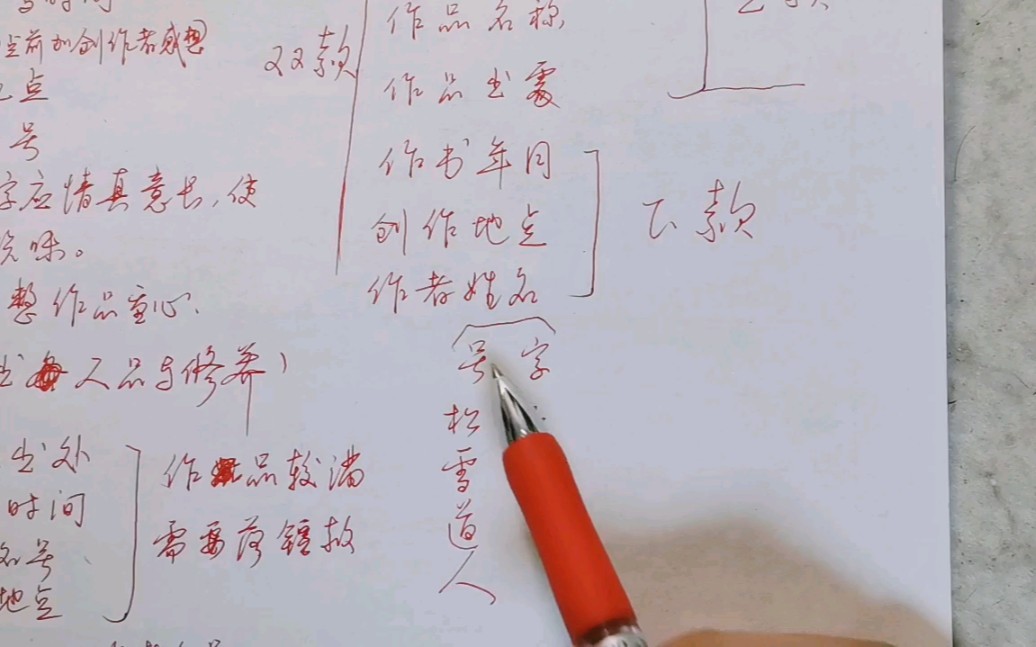 写时间
坐前加创作者感想
地点
号
字应情真意长,使
玩味。
整作品重心.
人品与修养)
出处
时间
名号
地点
作品较满
需要落短款
双款
作品名称
作品出处
作书年月
创作地点
作者姓名
下款
号 字
松
雪
道
人